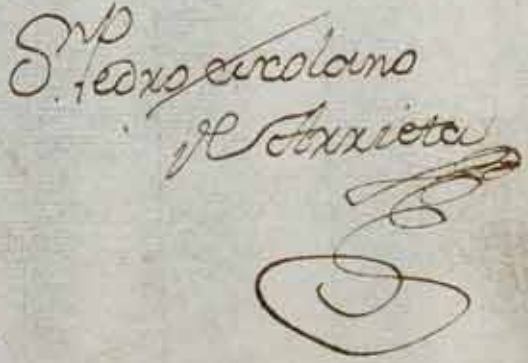 D.ⁿ Pedro Escolano
de Arrieta